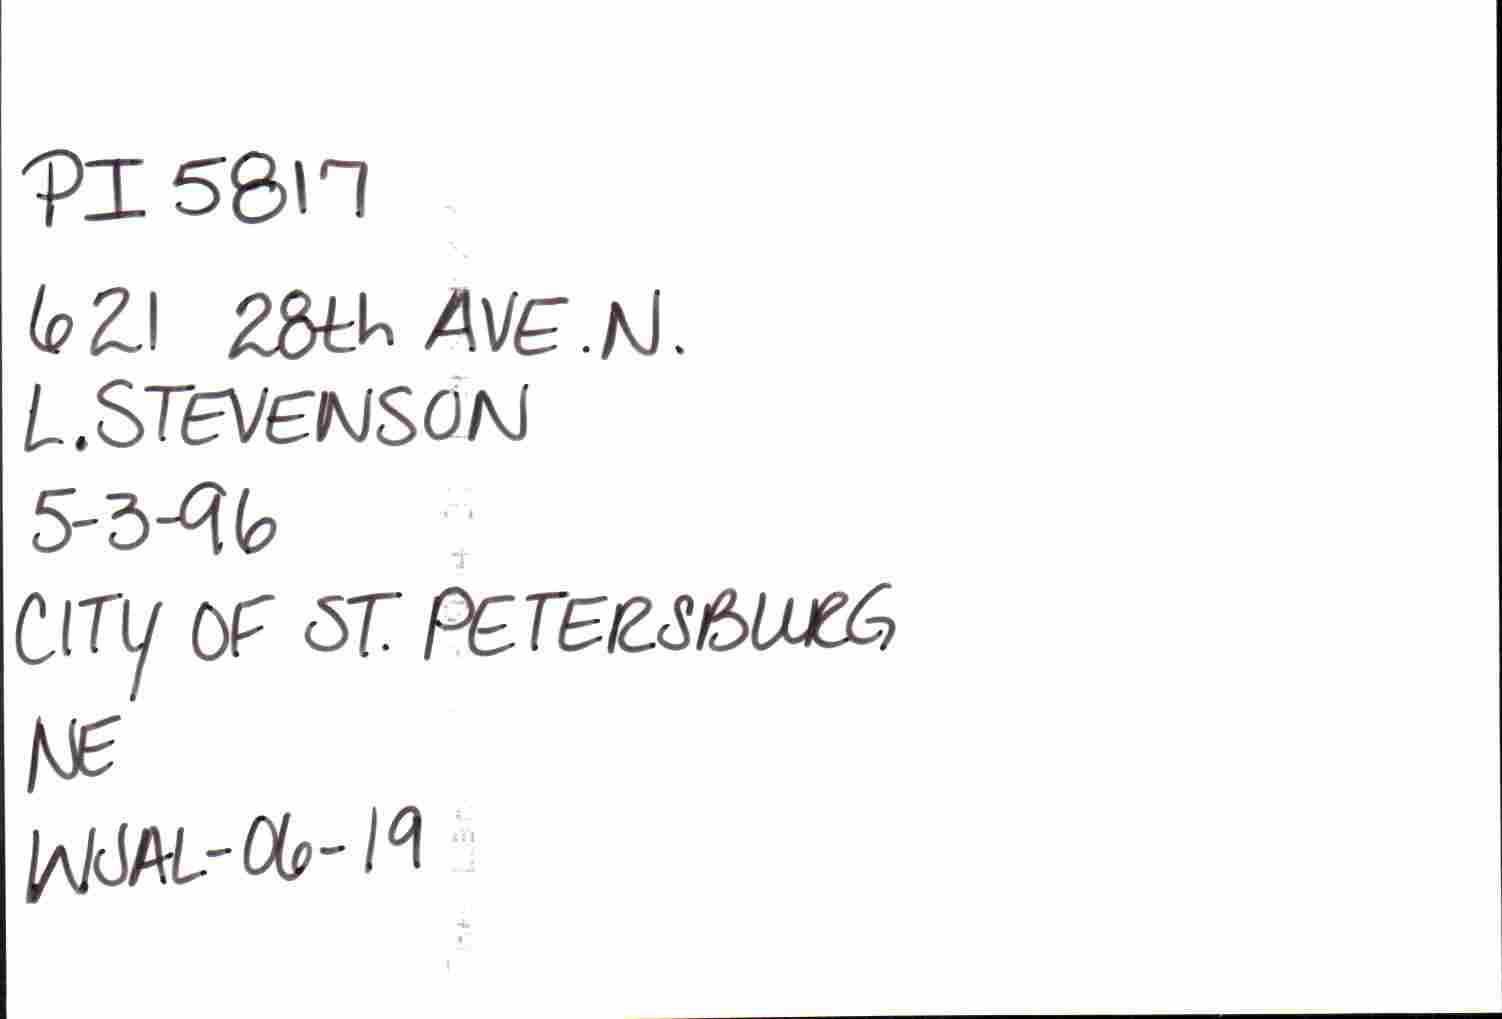 PI 5817
621 28th AVE. N.
L. STEVENSON
5-3-96
CITY OF ST. PETERSBURG
NE
WJAL-06-19